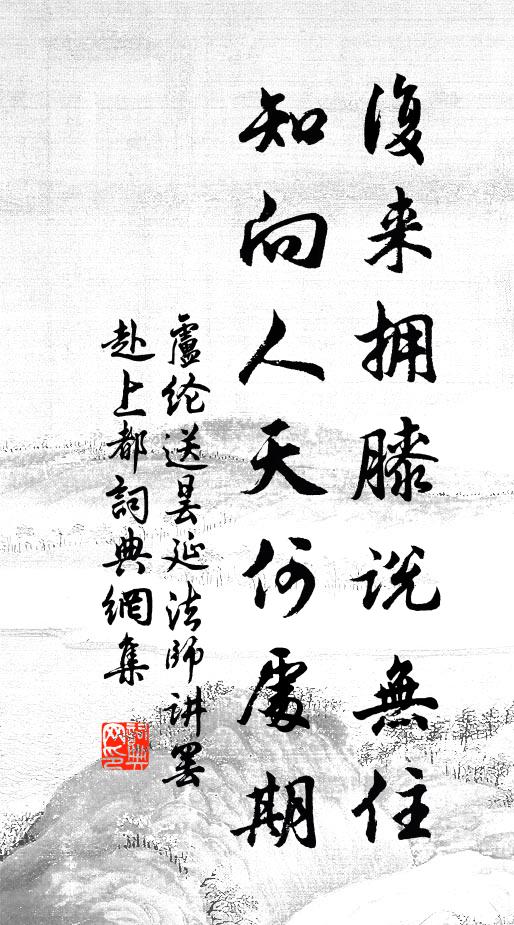 復来拥膝説無住
知向人天何處期
盧纶送曇延法師讲罢
赴上都詞典網集